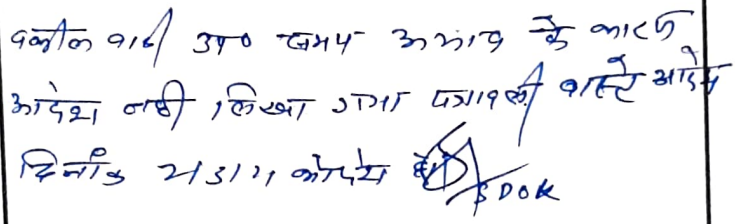 वकील वादी उप० समय अभाव के कारण
आदेश नही लिखा गया पत्रावली वास्ते आदेश
दिनांक को पेश हो
SDOK